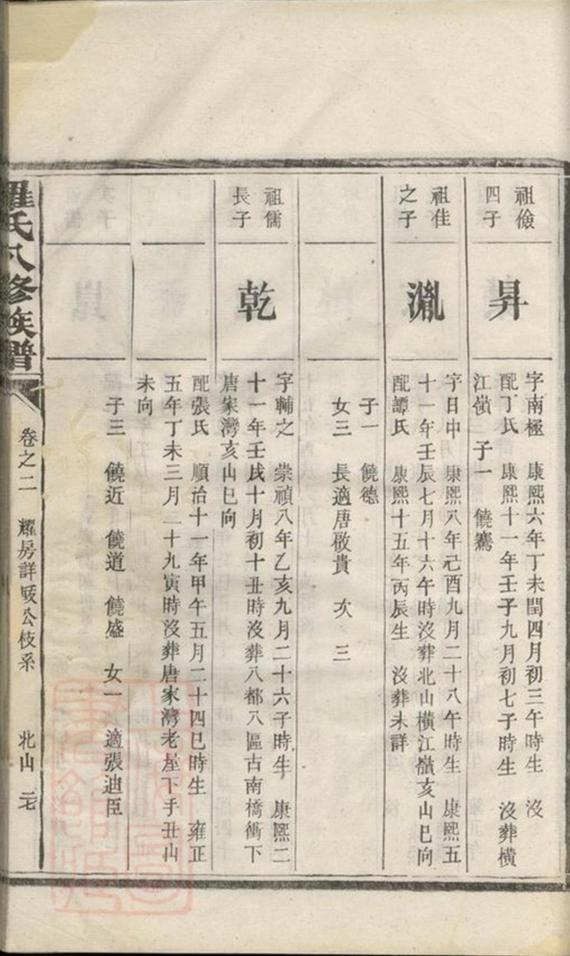 祖儉
四子
昇
字南極 康熙六年丁未閏四月初三午時生 沒
配丁氏 康熙十一年壬子九月初七子時生 沒葬橫
江嶺 子一 饒鸞
祖佳
之子
胤
字日中 康熙八年己酉九月二十八午時生 康熙五
十一年壬辰七月十六午時沒葬北山橫江嶺亥山巳向
配譚氏 康熙十五年丙辰生 沒葬未詳
子一 饒德
女三 長適唐敬貴 次 三
祖儒
長子
乾
字輔之 崇禎八年乙亥九月二十六子時生 康熙二
十一年壬戌十月初十丑時沒葬八都八區古南橋衝下
唐家灣亥山巳向
配張氏 順治十一年甲午五月二十四巳時生 雍正
五年丁未三月二十九寅時沒葬唐家灣老屋下手丑山
未向
子三 饒近 饒道 饒盛 女一 適張迪臣
羅氏八修族譜
卷之二 耀房詳晸公枝系 北山